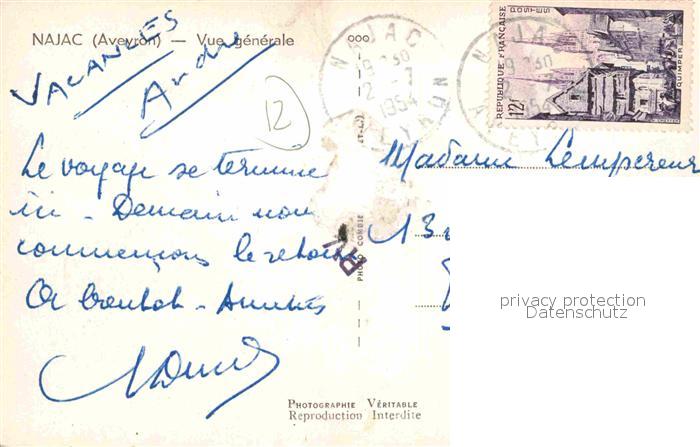 NAJAC (Aveyron) — Vue générale
VACANCES
12
NAJAC
1954
AVEYRON
REPUBLIQUE FRANÇAISE
POSTES
QUIMPER
12F
Le voyage se termine
ici - Demain nous
commençons le retour
Madame Lempereur
13
PHOTO COMBIER
PHOTOGRAPHIE VÉRITABLE
Reproduction Interdite
privacy protection
Datenschutz